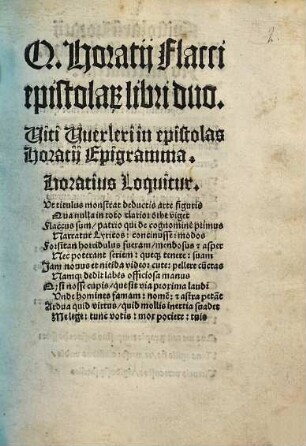 Q. Horatij Flacci
epistolaꝝ libri duo.
Viti Verleri in epistolas
Horatij Epigramma.
Horatius Loquitur.
Ut titulus monstrat deductis arte figuris
Qua nulla in toto clarior orbe viget
Flaccus sum / patrio qui de cognomine primus
Narratur Lyricos : continuisse : modos
Forsitan horridulus fueram / mendosus : asper
Nec poterant seriem : quęque tenere : suam
Jam nouus et nitida video : cute : pellere cūctas
Namq; dedit labes officiosa manus
Q; si nosse cupis / que sit via proxima laudi
Unde homines famam : nomē : astra petāt
Ardua quid virtus / quid mollis inertia suadet
Me lege : tunc votis : mox potiere : tuis